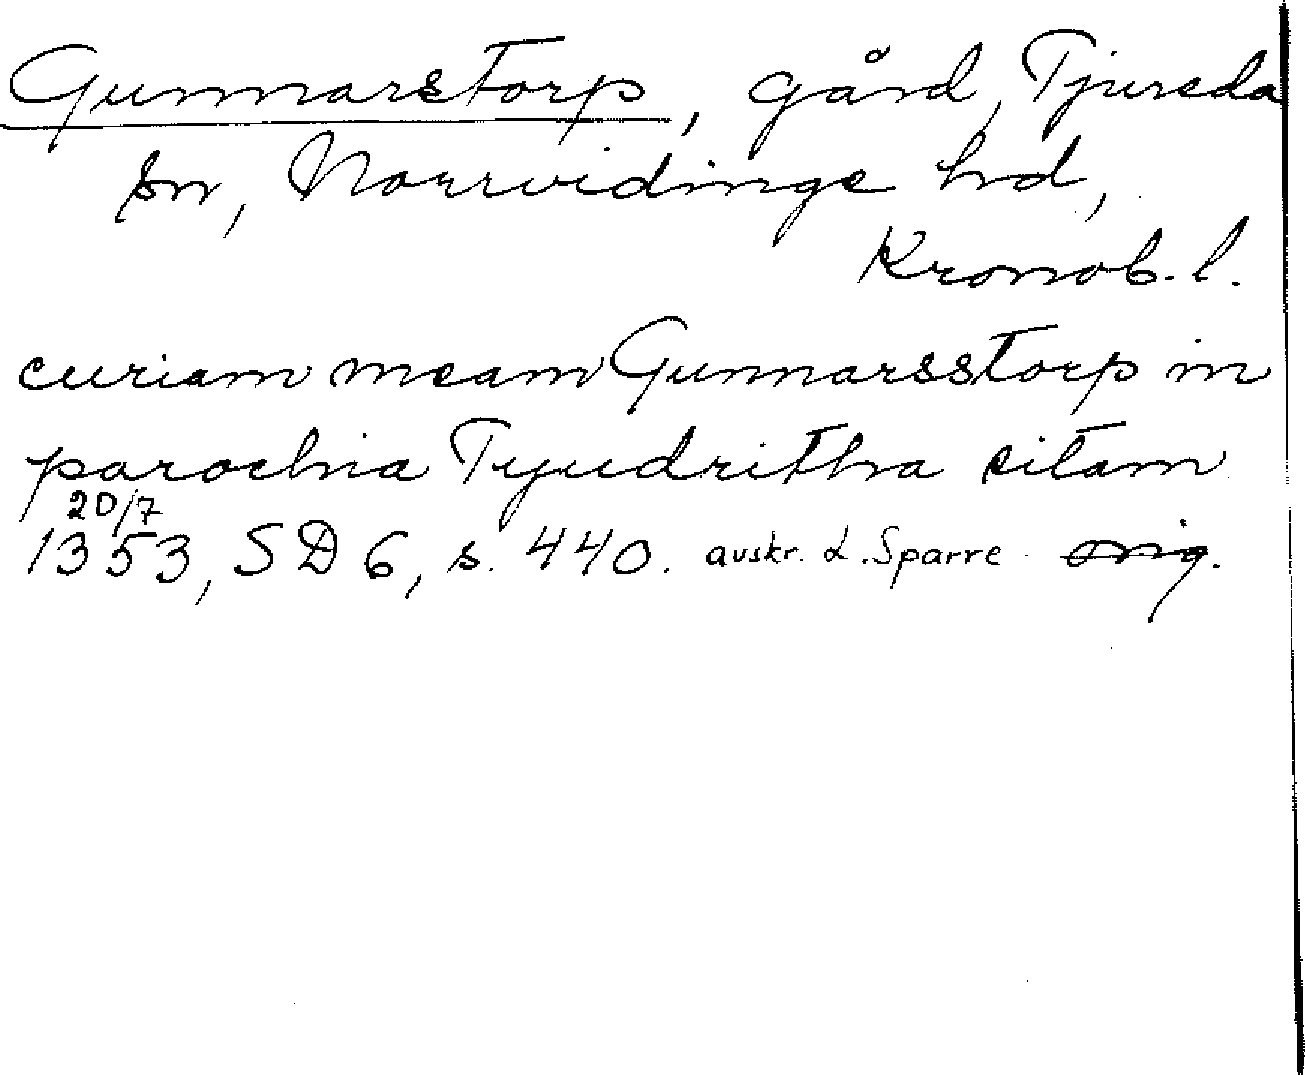 Gunnarstorp, gård, Tjureda
sn, Norrvidinge hd,
Kronob. l.
curiam meam Gunnarsstorp in
parochia Tyudritha sitam
20/7
1353, SD 6, s. 440. avskr. L. Sparre orig.